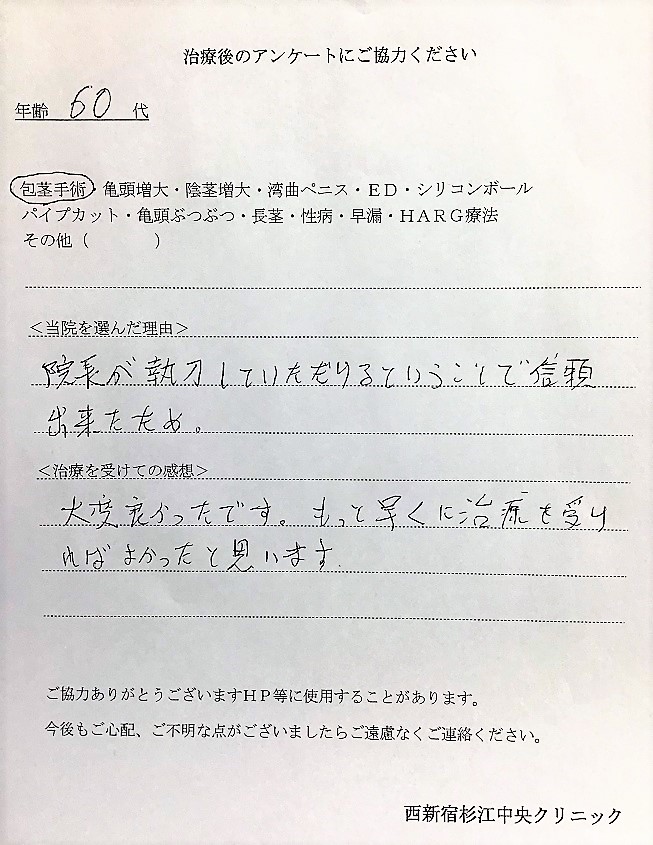 治療後のアンケートにご協力ください
年齢 60 代
包茎手術・亀頭増大・陰茎増大・湾曲ペニス・ED・シリコンボール
パイプカット・亀頭ぶつぶつ・長茎・性病・早漏・HARG療法
その他（　　　）
＜当院を選んだ理由＞
院長が執刀していただけるということで信頼
出来たため。
＜治療を受けての感想＞
大変良かったです。もっと早くに治療を受け
ればよかったと思います.
ご協力ありがとうございますHP等に使用することがあります。
今後もご心配、ご不明な点がございましたらご遠慮なくご連絡ください。
西新宿杉江中央クリニック